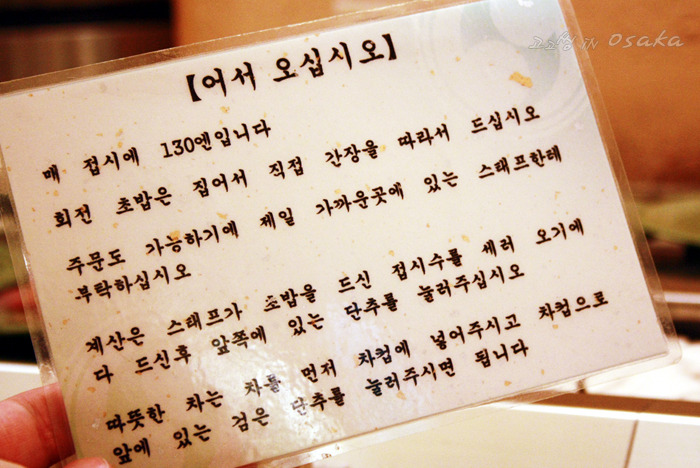 고고씽 in Osaka
【어서 오십시오】
매 접시에 130엔입니다
회전 초밥은 집어서 직접 간장을 따라서 드십시오
주문도 가능하기에 제일 가까운곳에 있는 스태프한테
부탁하십시오
계산은 스태프가 초밥을 드신 접시수를 세러 오기에
다 드신후 앞쪽에 있는 단추를 눌러주십시오
따뜻한 차는 차를 먼저 차컵에 넣어주시고 차컵으로
앞에 있는 검은 단추를 눌러주시면 됩니다